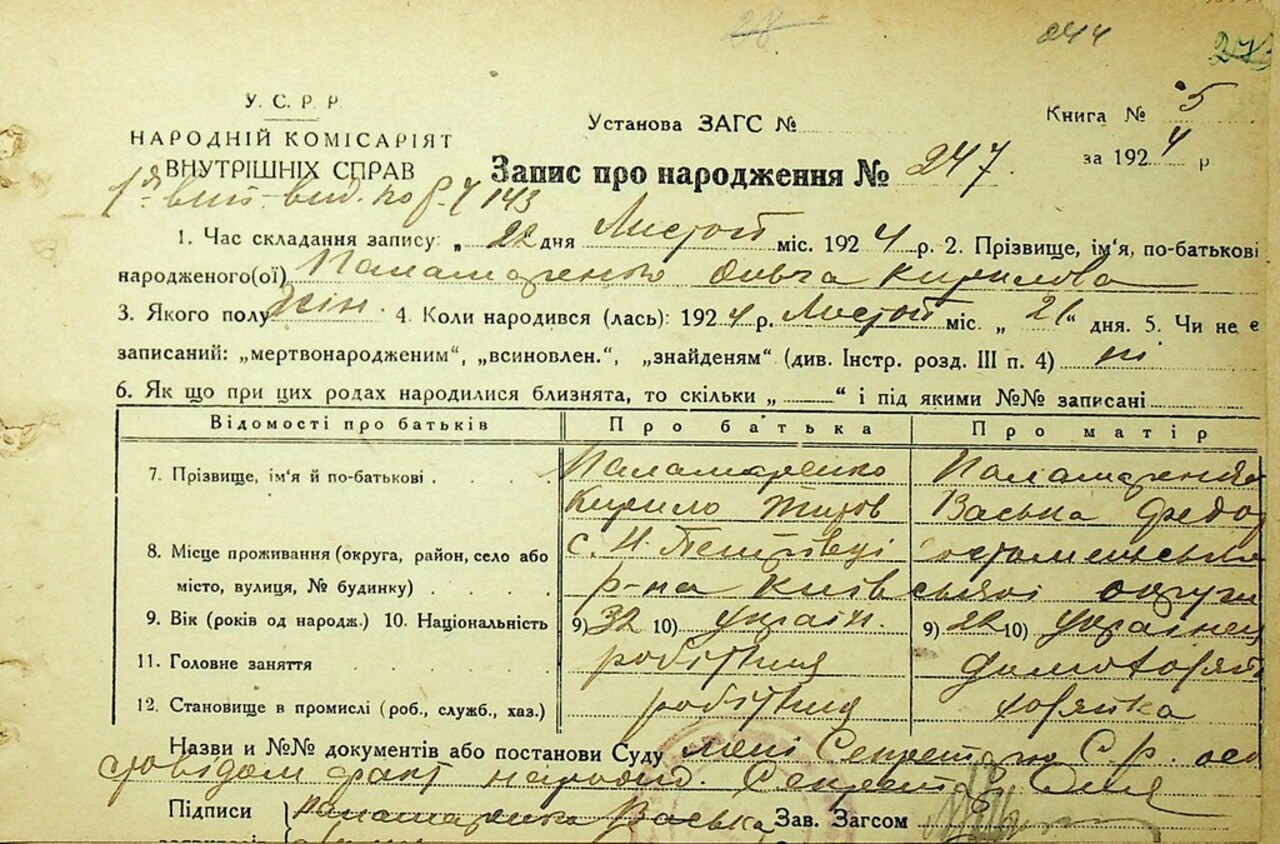 244
У. С. Р. Р.
НАРОДНІЙ КОМІСАРІЯТ
ВНУТРІШНІХ СПРАВ
Установа ЗАГС №
Книга № 5
за 1924 р
Запис про народження № 247.
143
1. Час складання запису: „ 22 дня Листоп міс. 1924 р. 2. Прізвище, ім'я, по-батькові
народженого(ої) Паламаренко Ольга Кирилова
3. Якого полу жін. 4. Коли народився (лась): 1924 р. Листоп міс. „ 21“ дня. 5. Чи не є
записаний: „мертвонародженим“, „всиновлен.“, „знайденям“ (див. Інстр. розд. III п. 4) ні
6. Як що при цих родах народилися близнята, то скільки „ “ і під якими №№ записані
Відомості про батьків Про батька Про матір
7. Прізвище, ім'я й по-батькові Паламаренко Паламаренко
Кирило Титов Васька Федор
8. Місце проживання (округа, район, село або с. Н. Петрівці Гостомельськ
місто, вулиця, № будинку) р-на Київської округи
9. Вік (років од народж.) 10. Національність 9) 32 10) Україн. 9) 22 10) Українец
11. Головне заняття робітник домохазяй
12. Становище в промислі (роб., служб., хаз.) робітник хозяйка
Назви и №№ документів або постанови Суду мені Секретарю С. р.
факт народж. Секретар
Підписи Паламаренко Васька Зав. Загсом